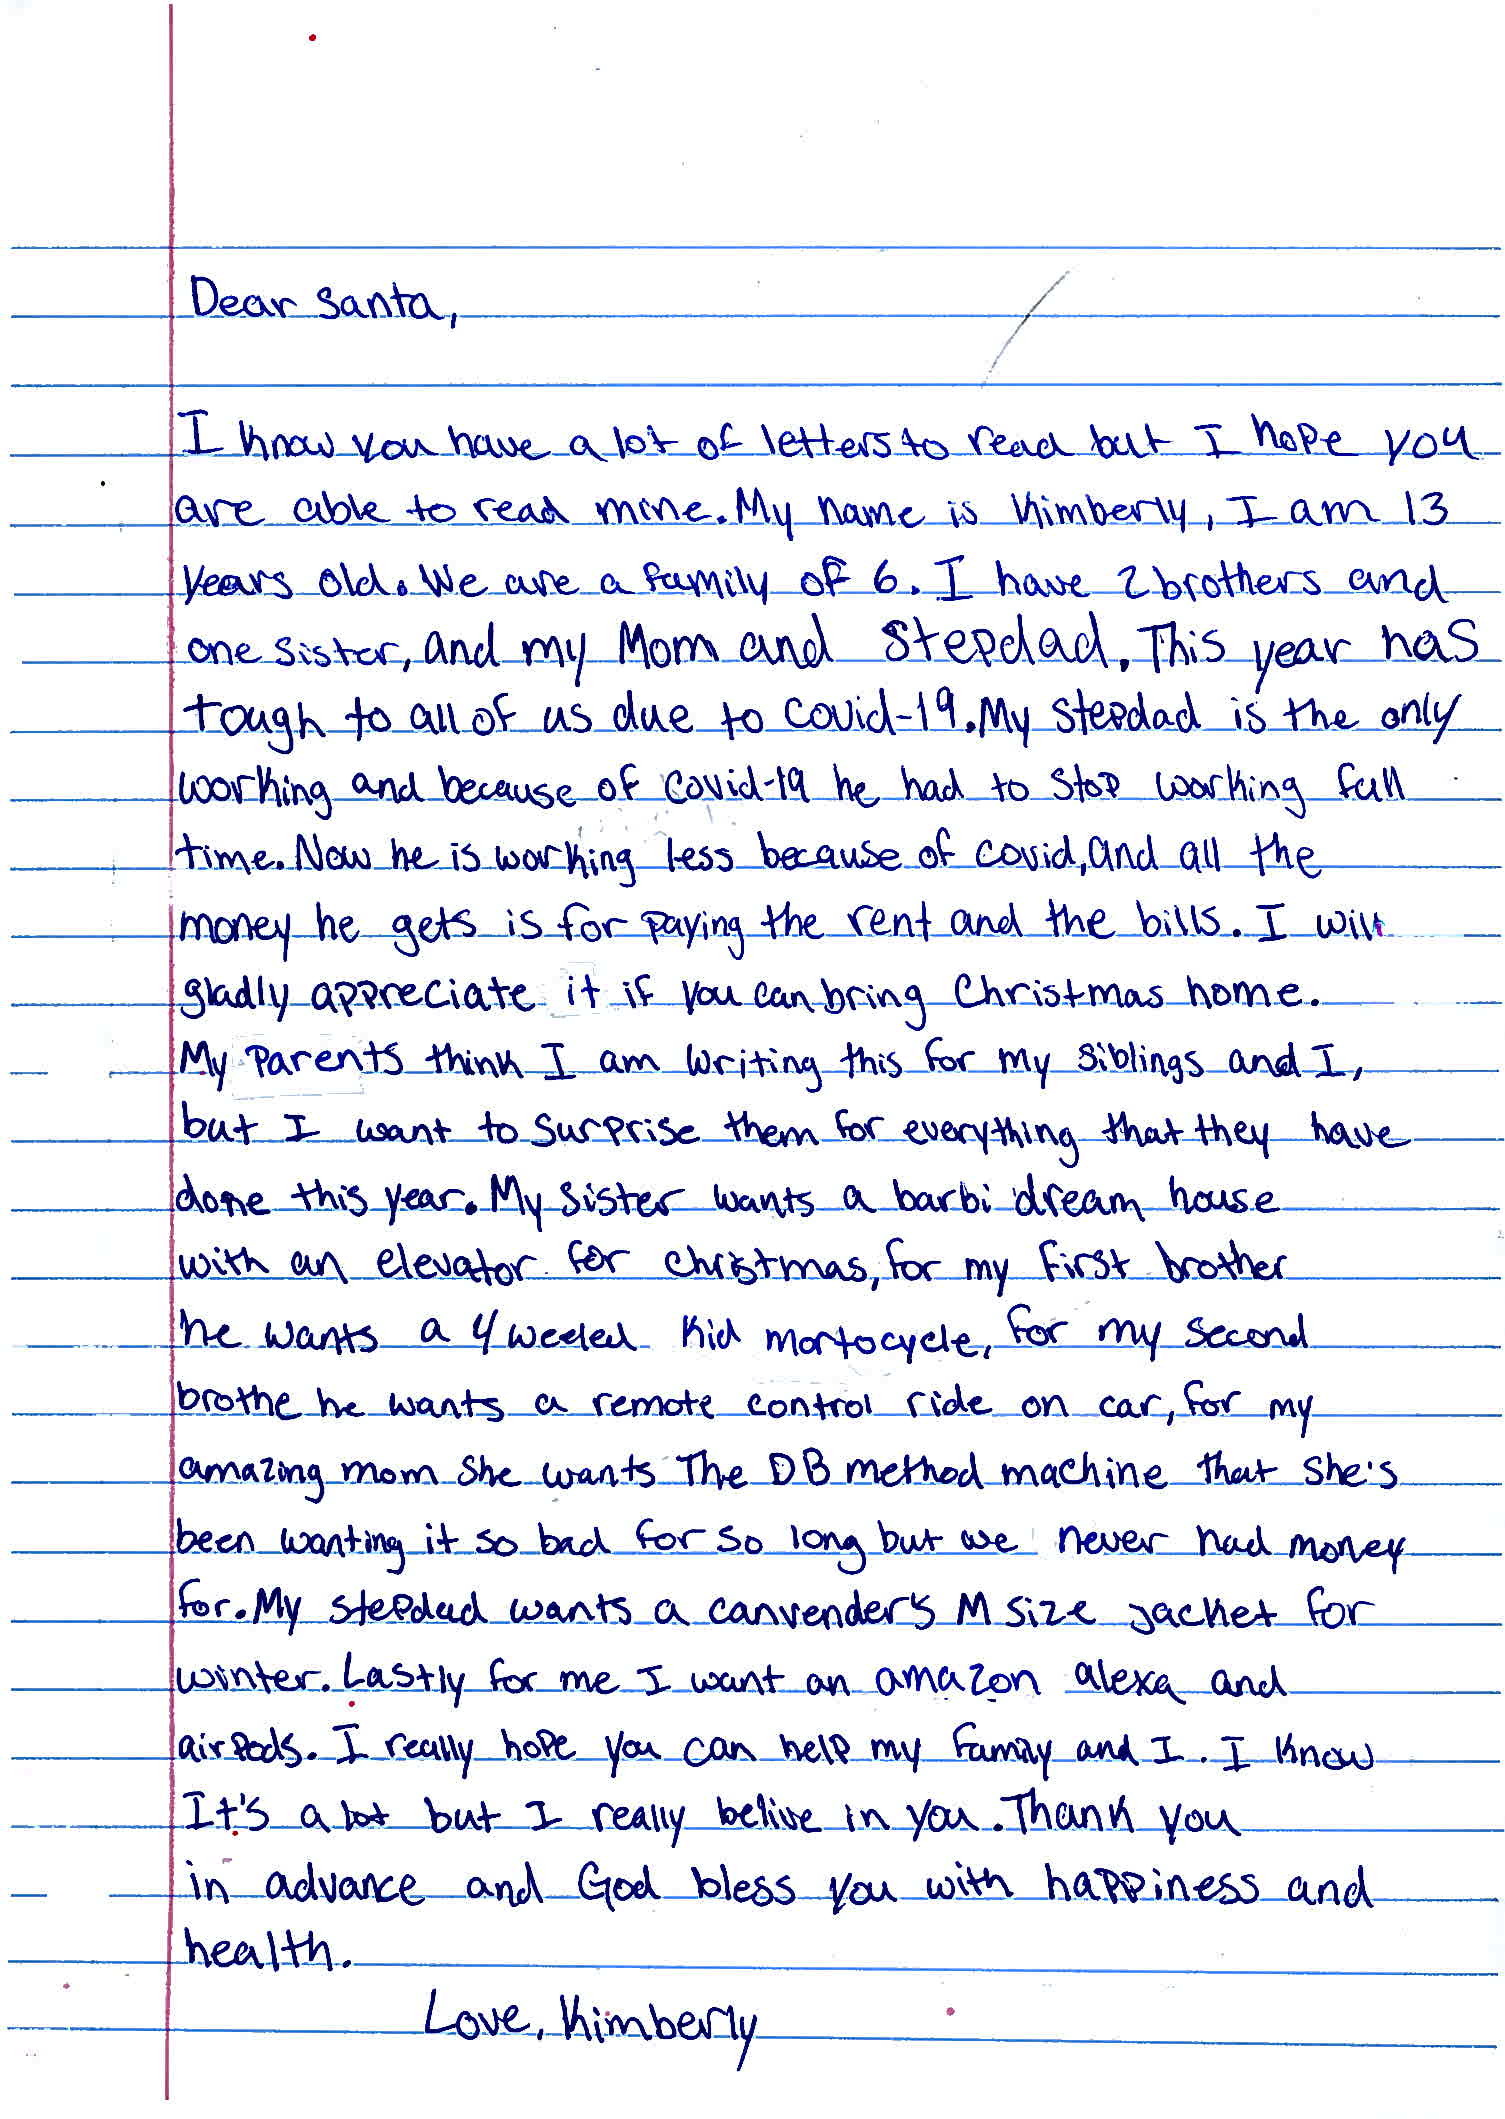 Dear Santa,
I know you have a lot of letters to read but I hope you
are able to read mine. My name is Kimberly, I am 13
years old. We are a family of 6. I have 2 brothers and
one sister, and my Mom and Stepdad. This year has
tough to all of us due to covid-19. My stepdad is the only
working and because of covid-19 he had to stop working full
time. Now he is working less because of covid, and all the
money he gets is for paying the rent and the bills. I will
gladly appreciate it if you can bring Christmas home.
My Parents think I am writing this for my siblings and I,
but I want to surprise them for everything that they have
done this year. My sister wants a barbi dream house
with an elevator for christmas, for my first brother
he wants a 4 weeled kid mortocycle, for my second
brothe he wants a remote control ride on car, for my
amazing mom she wants The DB method machine that she's
been wanting it so bad for so long but we never had money
for. My stepdad wants a canvender's M size jacket for
winter. Lastly for me I want an amazon alexa and
airpods. I really hope you can help my family and I. I know
It's a lot but I really belive in you. Thank you
in advance and God bless you with happiness and
health.
Love, Kimberly